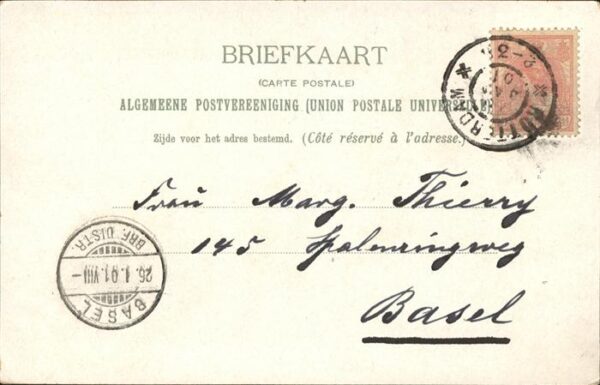 BRIEFKAART
(CARTE POSTALE)
ALGEMEENE POSTVEREENIGING (UNION POSTALE UNIVERSELLE)
Zijde voor het adres bestemd. (Côté réservé à l'adresse.)
ROTTERDAM
12-3
Frau Marg. Thierry
145 Spalenringweg
Basel
BRF. DISTR.
26.1.01.VIII-
BASEL